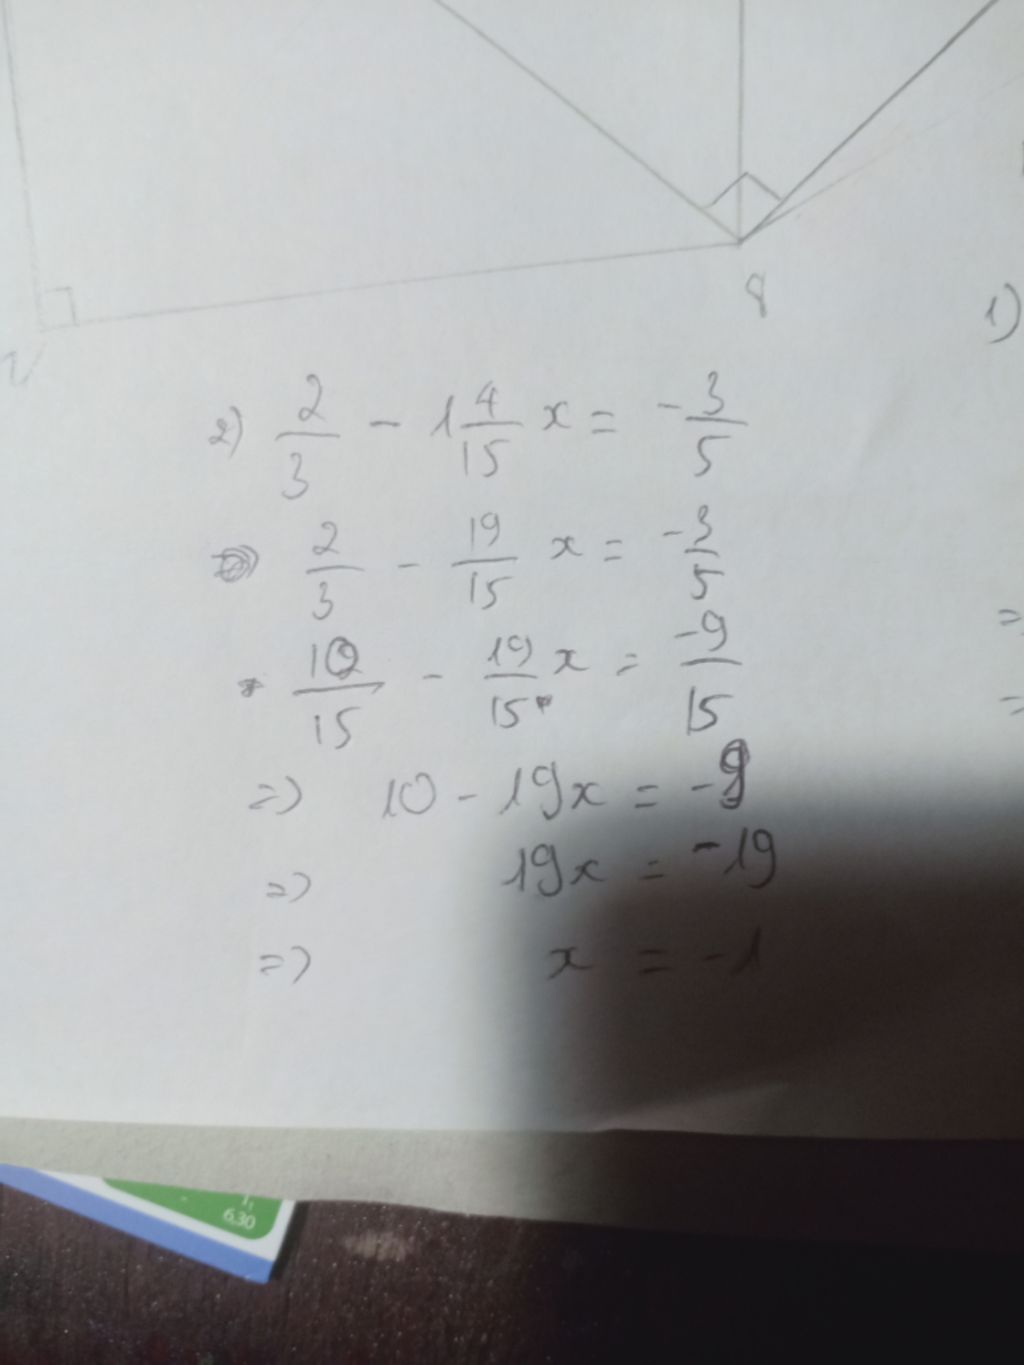 8
1)
2) 2/3 - 1 4/15 x = -3/5
2/3 - 19/15 x = -3/5
10/15 - 19/15 x = -9/15
=> 10 - 19x = -9
=> 19x = -19
=> x = -1
=
=
6,30